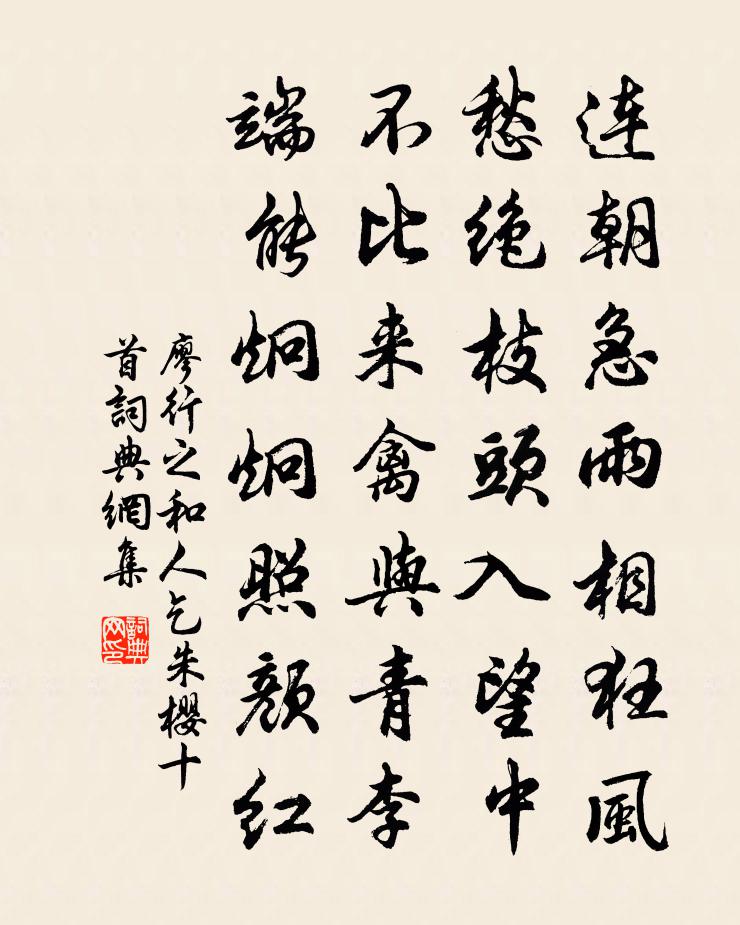 連朝急雨相狂風
愁絶枝頭入望中
不比来禽與青李
端能炯炯照顏紅
廖行之和人乞朱櫻十
首詞典網集
詞典網印